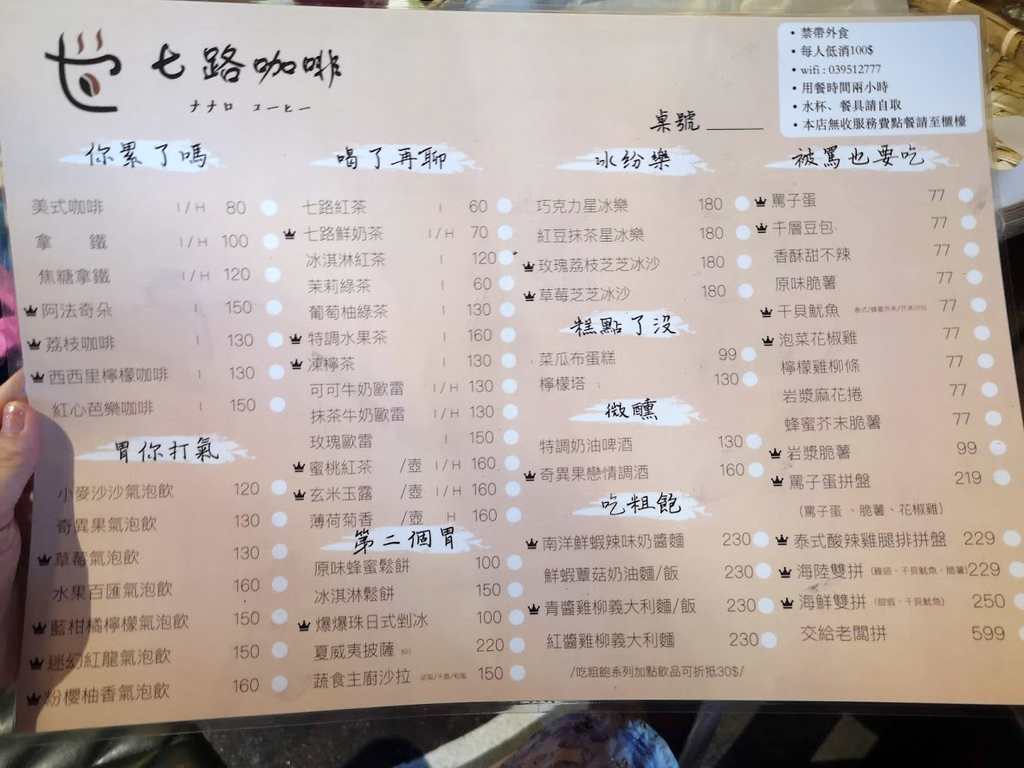 七路咖啡
ナナロ コーヒー
• 禁帶外食
• 每人低消100$
• wifi : 039512777
• 用餐時間兩小時
• 水杯、餐具請自取
• 本店無收服務費點餐請至櫃檯
桌號 ____
你累了嗎
美式咖啡 I / H 80
拿 鐵 I / H 100
焦糖拿鐵 I / H 120
阿法奇朵 I 150
荔枝咖啡 I 130
西西里檸檬咖啡 I 130
紅心芭樂咖啡 I 150
胃你打氣
小麥沙沙氣泡飲 120
奇異果氣泡飲 130
草莓氣泡飲 130
水果百匯氣泡飲 160
藍柑橘檸檬氣泡飲 150
迷幻紅龍氣泡飲 150
粉櫻柚香氣泡飲 160
喝了再聊
七路紅茶 I 60
七路鮮奶茶 I / H 70
冰淇淋紅茶 I 120
茉莉綠茶 I 60
葡萄柚綠茶 I 130
特調水果茶 I 160
凍檸茶 I 130
可可牛奶歐雷 I / H 130
抹茶牛奶歐雷 I / H 130
玫瑰歐雷 I 150
蜜桃紅茶 /壺 I / H 160
玄米玉露 /壺 I / H 160
薄荷菊香 /壺 H 160
第二個胃
原味蜂蜜鬆餅 100
冰淇淋鬆餅 150
爆爆珠日式剉冰 100
夏威夷披薩 220
蔬食主廚沙拉 150
冰紛樂
巧克力星冰樂 180
紅豆抹茶星冰樂 180
玫瑰荔枝芝芝冰沙 180
草莓芝芝冰沙 180
糕點了沒
菜瓜布蛋糕 99
檸檬塔 130
微醺
特調奶油啤酒 130
奇異果戀情調酒 160
吃粗飽
南洋鮮蝦辣味奶醬麵 230
鮮蝦蕈菇奶油麵/飯 230
青醬雞柳義大利麵/飯 230
紅醬雞柳義大利麵 230
/吃粗飽系列加點飲品可折抵30$/
被罵也要吃
罵子蛋 77
千層豆包 77
香酥甜不辣 77
原味脆薯 77
干貝魷魚 77
泡菜花椒雞 77
檸檬雞柳條 77
岩漿麻花捲 77
蜂蜜芥末脆薯 77
岩漿脆薯 99
罵子蛋拼盤 219
(罵子蛋、脆薯、花椒雞)
泰式酸辣雞腿排拼盤 229
海陸雙拼 (雞翅、干貝魷魚、脆薯) 229
海鮮雙拼 (甜蝦、干貝魷魚) 250
交給老闆拼 599